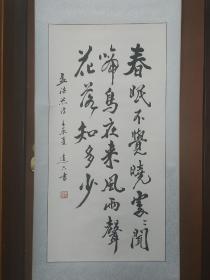 春眠不覺曉處〻聞
啼鳥夜来風雨聲
花落知多少
孟浩然詩